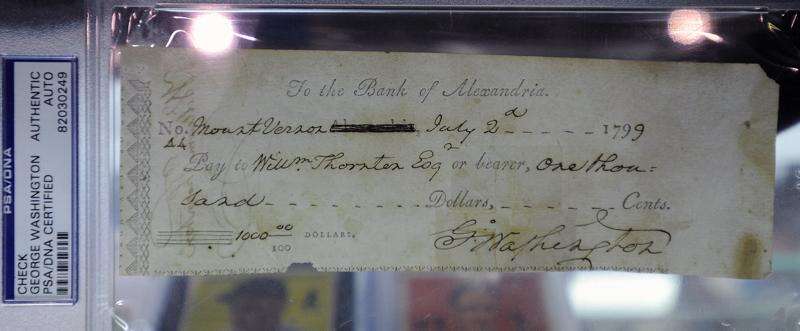 PSA/DNA
CHECK
GEORGE WASHINGTON AUTHENTIC
PSA/DNA CERTIFIED AUTO
82030249
To the Bank of Alexandria.
No. Mount Vernon July 2d 1799
Pay to Willm. Thornton Esqr or bearer, One thou=
sand Dollars, Cents.
1000 00/100 DOLLARS.
Go: Washington